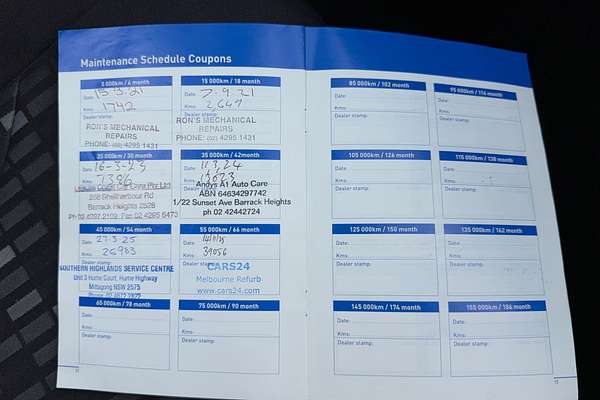 Maintenance Schedule Coupons
5 000km / 6 month
Date: 15-3-21
Kms: 1742
Dealer stamp:
RON'S MECHANICAL
REPAIRS
PHONE: (02) 4295 1431
15 000km / 18 month
Date: 7-9-21
Kms: 2,647
Dealer stamp:
RON'S MECHANICAL
REPAIRS
PHONE: (02) 4295 1431
25 000km / 30 month
Date: 16-3-23
Kms: 7386
Barrack Heights 2528
35 000km / 42month
Date:
Kms:
Andys A1 Auto Care
ABN 64634297742
1/22 Sunset Ave Barrack Heights
ph 02 42442724
45 000km / 54 month
Date: 27-3-25
Kms: 26983
Dealer stamp:
SOUTHERN HIGHLANDS SERVICE CENTRE
Unit 3 Hume Court, Hume Highway
Mittagong NSW 2575
55 000km / 66 month
Date:
Kms: 39056
Dealer stamp:
CARS24
Melbourne Refurb
www.cars24.com
65 000km / 78 month
Date:
Kms:
Dealer stamp:
75 000km / 90 month
Date:
Kms:
Dealer stamp:
85 000km / 102 month
Date:
Kms:
Dealer stamp:
95 000km / 114 month
Date:
Kms:
Dealer stamp:
105 000km / 126 month
Date:
Kms:
Dealer stamp:
115 000km / 138 month
Date:
Kms:
Dealer stamp:
125 000km / 150 month
Date:
Kms:
Dealer stamp:
135 000km / 162 month
Date:
Kms:
Dealer stamp:
145 000km / 174 month
Date:
Kms:
Dealer stamp:
155 000km / 186 month
Date:
Kms:
Dealer stamp: